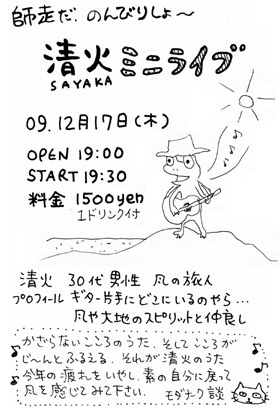 師走だ. のんびりしょ〜
清火 ミニライブ
SAYAKA
09.12月17日(木)
OPEN 19:00
START 19:30
料金 1500yen
1ドリンク付
清火 30代 男性 風の旅人
プロフィール ギター片手にどこにいるのやら…
風や大地のスピリットと仲良し
かざらないこころのうた、そして こころが
じ〜んとふるえる。それが清火のうた
今年の疲れをいやし、素の自分に戻って
風を感じてみて下さい. モダナーク 談